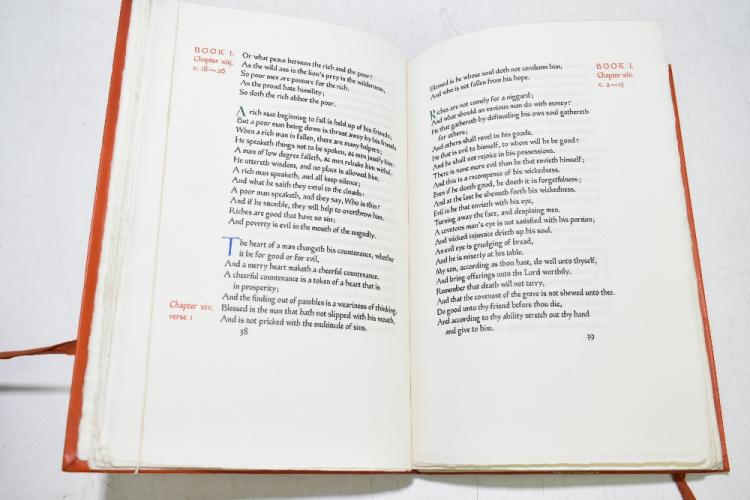 BOOK I.
Chapter xiij.
v. 18—26
Or what peace between the rich and the poor?
As the wild ass is the lion's prey in the wilderness,
So poor men are pasture for the rich.
As the proud hate humility;
So doth the rich abhor the poor.
A rich man beginning to fall is held up of his friends;
But a poor man being down is thrust away by his friends.
When a rich man is fallen, he hath many helpers;
He speaketh things not to be spoken, & men justify him:
A man of low degree falleth, & men rebuke him withal;
He uttereth wisdom, and no place is allowed him.
A rich man speaketh, and all keep silence;
And what he saith they extol to the clouds:
A poor man speaketh, and they say, Who is this?
And if he stumble, they will help to overthrow him.
Riches are good that have no sin;
And poverty is evil in the mouth of the ungodly.
The heart of a man changeth his countenance, whether
it be for good or for evil,
And a merry heart maketh a cheerful countenance.
A cheerful countenance is a token of a heart that is
in prosperity;
And the finding out of parables is a weariness of thinking.
Chapter xiv.
verse 1
Blessed is the man that hath not slipped with his mouth,
And is not pricked with the multitude of sins.
38
BOOK I.
Chapter xiv.
v. 2—13
Blessed is he whose soul doth not condemn him,
And who is not fallen from his hope.
Riches are not comely for a niggard;
And what should an envious man do with money?
He that gathereth by defrauding his own soul gathereth
for others;
And others shall revel in his goods.
He that is evil to himself, to whom will he be good?
And he shall not rejoice in his possessions.
There is none more evil than he that envieth himself;
And this is a recompense of his wickedness.
Even if he doeth good, he doeth it in forgetfulness;
And at the last he sheweth forth his wickedness.
Evil is he that envieth with his eye,
Turning away the face, and despising men.
A covetous man's eye is not satisfied with his portion;
And wicked injustice drieth up his soul.
An evil eye is grudging of bread,
And he is miserly at his table.
My son, according as thou hast, do well unto thyself,
And bring offerings unto the Lord worthily.
Remember that death will not tarry,
And that the covenant of the grave is not shewed unto thee.
Do good unto thy friend before thou die,
And according to thy ability stretch out thy hand
and give to him.
39